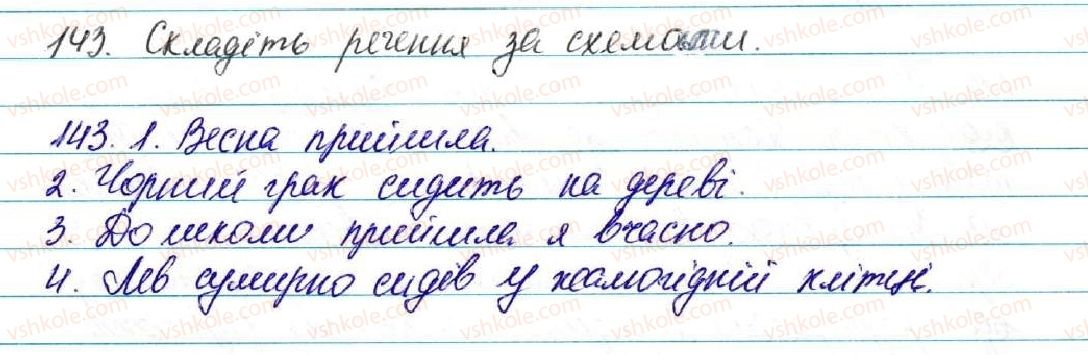 143. Складіть речення за схемами.
143. 1. Весна прийшла.
2. Чорний грак сидить на дереві.
3. До школи прийшла я вчасно.
4. Лев сумирно сидів у клітці.